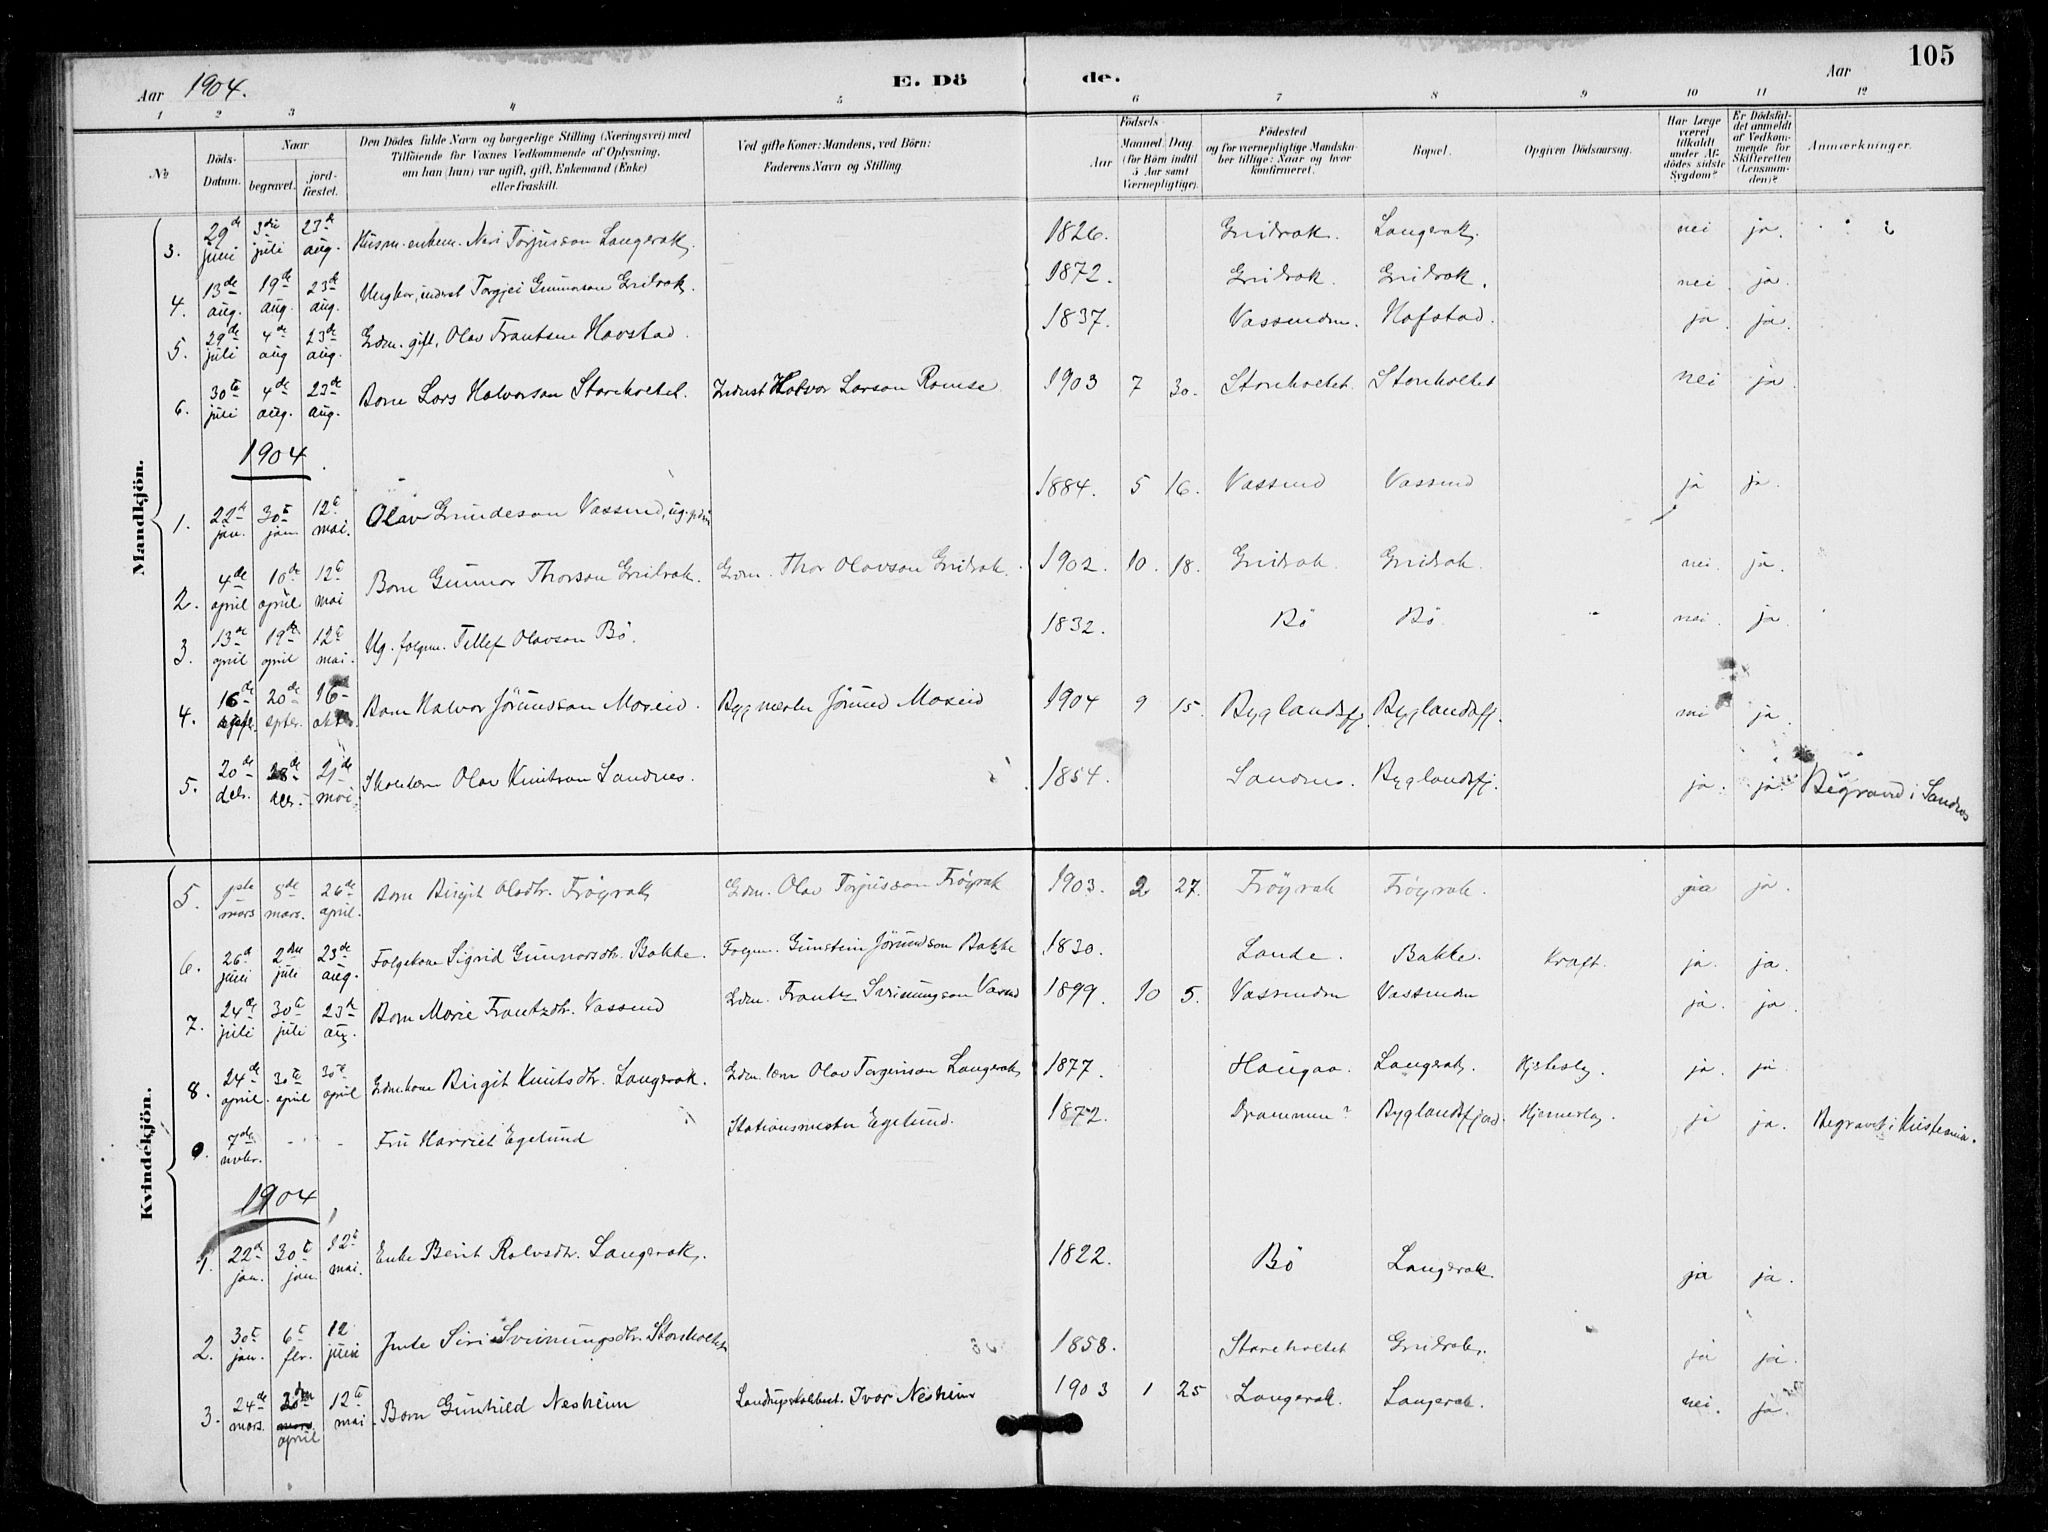 105
Aar 1904. E. Dö de. Aar
1 2 3 4 5 6 7 8 9 10 11 12
No
Döds-Datum.
Naar
begravet.
jord-fæstet.
Den Dödes fulde Navn og borgerlige Stilling (Næringsvei) med
Tilföiende for Voxnes Vedkommende af Oplysning,
om han (hun) var ugift, gift, Enkemand (Enke)
eller fraskilt.
Ved gifte Koner: Mandens, ved Börn:
Faderens Navn og Stilling.
Födsels
Aar
Maaned Dag
(for Börn indtil
5 Aar samt
Værnepligtige).
Födested
og for værnepligtige Mandska-
ber tillige: Naar og hvor
konfirmeret.
Bopæl.
Opgiven Dödsaarsag.
Har Læge
været
tilkaldt
under Af-
dödes sidste
Sygdom?
Er Dödsfal-
det anmeldt
af Vedkom-
mende for
Skifteretten
(Lensman-
den)?
Anmærkninger.
Mandkjön.
3. 29de juni 3die juli 23de aug. Husm. enkem. Neri Torjusson Langerak. 1826. Langerak. nei ja.
4. 13de aug. 19de aug. 23de aug. Ungkar, inderst Torgjei Gunnarson 1872. nei ja.
5. 29de juli 4de aug 23de aug. Grdm. gift, Olav Frantsen Havstad. 1837. Vassenden. Hafstad. ja ja.
6. 30te juli 4de aug. 23de aug. Barn Lars Halvorson Storeholtet. Inderst Halvor Larson 1903 7 30. Storeholtet. Storeholtet nei ja.
1904.
1. 22de jan. 30te jan 12te mai. Olav Grundeson Vassend, 1884. 5 16. Vassend Vassend ja ja.
2. 4de april 10de april 12te mai Barn Gunnar Thorson Grdm. Thor Olavson 1902. 10. 18. nei. ja.
3. 13de april 19de april 12te mai. Ug. folgem. Tellef Olavson Bö. 1832. Bö Bö. nei. ja.
4. 16de septr. 20de septr. 16 oktr. Barn Halvor Jörundson Moseid. Bygmester Jörund Moseid 1904 9 15. Byglandsfj. Byglandsfj. nei ja.
5. 20de decr. 28de decr. 21de mai. Olav Knutson Sandnes. 1854. Sandnes. Byglandsfj. ja. ja. Begravd i Sandnes
Kvindekjön.
5. 1ste mars 8de mars. 26de april. Barn Birgit Olsdtr. Fröyrak Grdm. Olav Torjusson Fröyrak 1903. 2 27. Fröyrak Fröyrak. ja.
6. 26de juni 2den juli 23de aug. Folgekone Sigrid Gunnarsdtr. Bakke. Folgem. Gunstein Jörundson Bakke 1830. Lande. Bakke. Kræft. ja. ja.
7. 24de juli 30te juli 23de aug. Barn Marie Frantzdtr. Vassend Grdm. Frantz Sveinungson 1899. 10 5. Vassenden Vassenden ja. ja.
8. 24de april. 30te april 30te april Grdm.kone Birgit Knutsdtr. Langerak. Olav Torgeirson Langerak 1877. Haugaa. Langerak. ja. ja
9. 7de novbr. - - Fru Harriet Egelund Stationsmester Egelund. 1872. Drammen? Byglandsfjord. ja ja. Begravet i Kristiania.
1904
1. 22de jan. 30te jan. 12te mai. Enke Berit Rolvsdtr. Langerak. 1822. Bö Langerak. ja ja.
2. 30te jan. 6te fbr. 12 juni Jente Siri Sveinungsdtr. Storeholtet 1858. Storeholtet ja ja.
3. 24de mars. mars. april 12te mai. Barn Gunhild Nesheim Ivar Nesheim 1903 1 25 Langerak. Langerak. nei. ja.